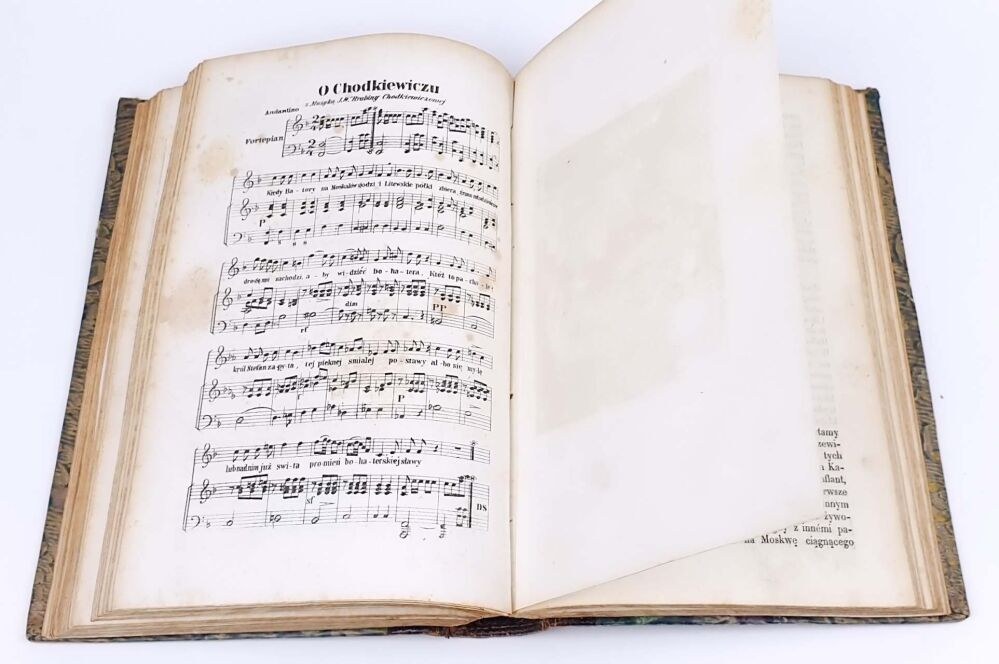 O Chodkiewiczu
z Muzyką J.W. Hrabiny Chodkiewiczowej
Andantino
Fortepian
Kiedy Ba-tory na Moskalów godzi i Litewskie półki zbiera,
P
drogę mu zachodzi, a-by widzieć bo-ha-tera, Któż to
dim
PP
rf
król Stefan zapyta, tej pięknej śmiałej po-stawy al-bo się mylę
r
P
lub nad nim już świ-ta promień bo-ha-terskiej sławy
sf
DS
tamy
zewi-
tych
Ka-
aflant,
erwsze
nnym
żywo-
z innémi pa-
na Moskwę ciągnącego